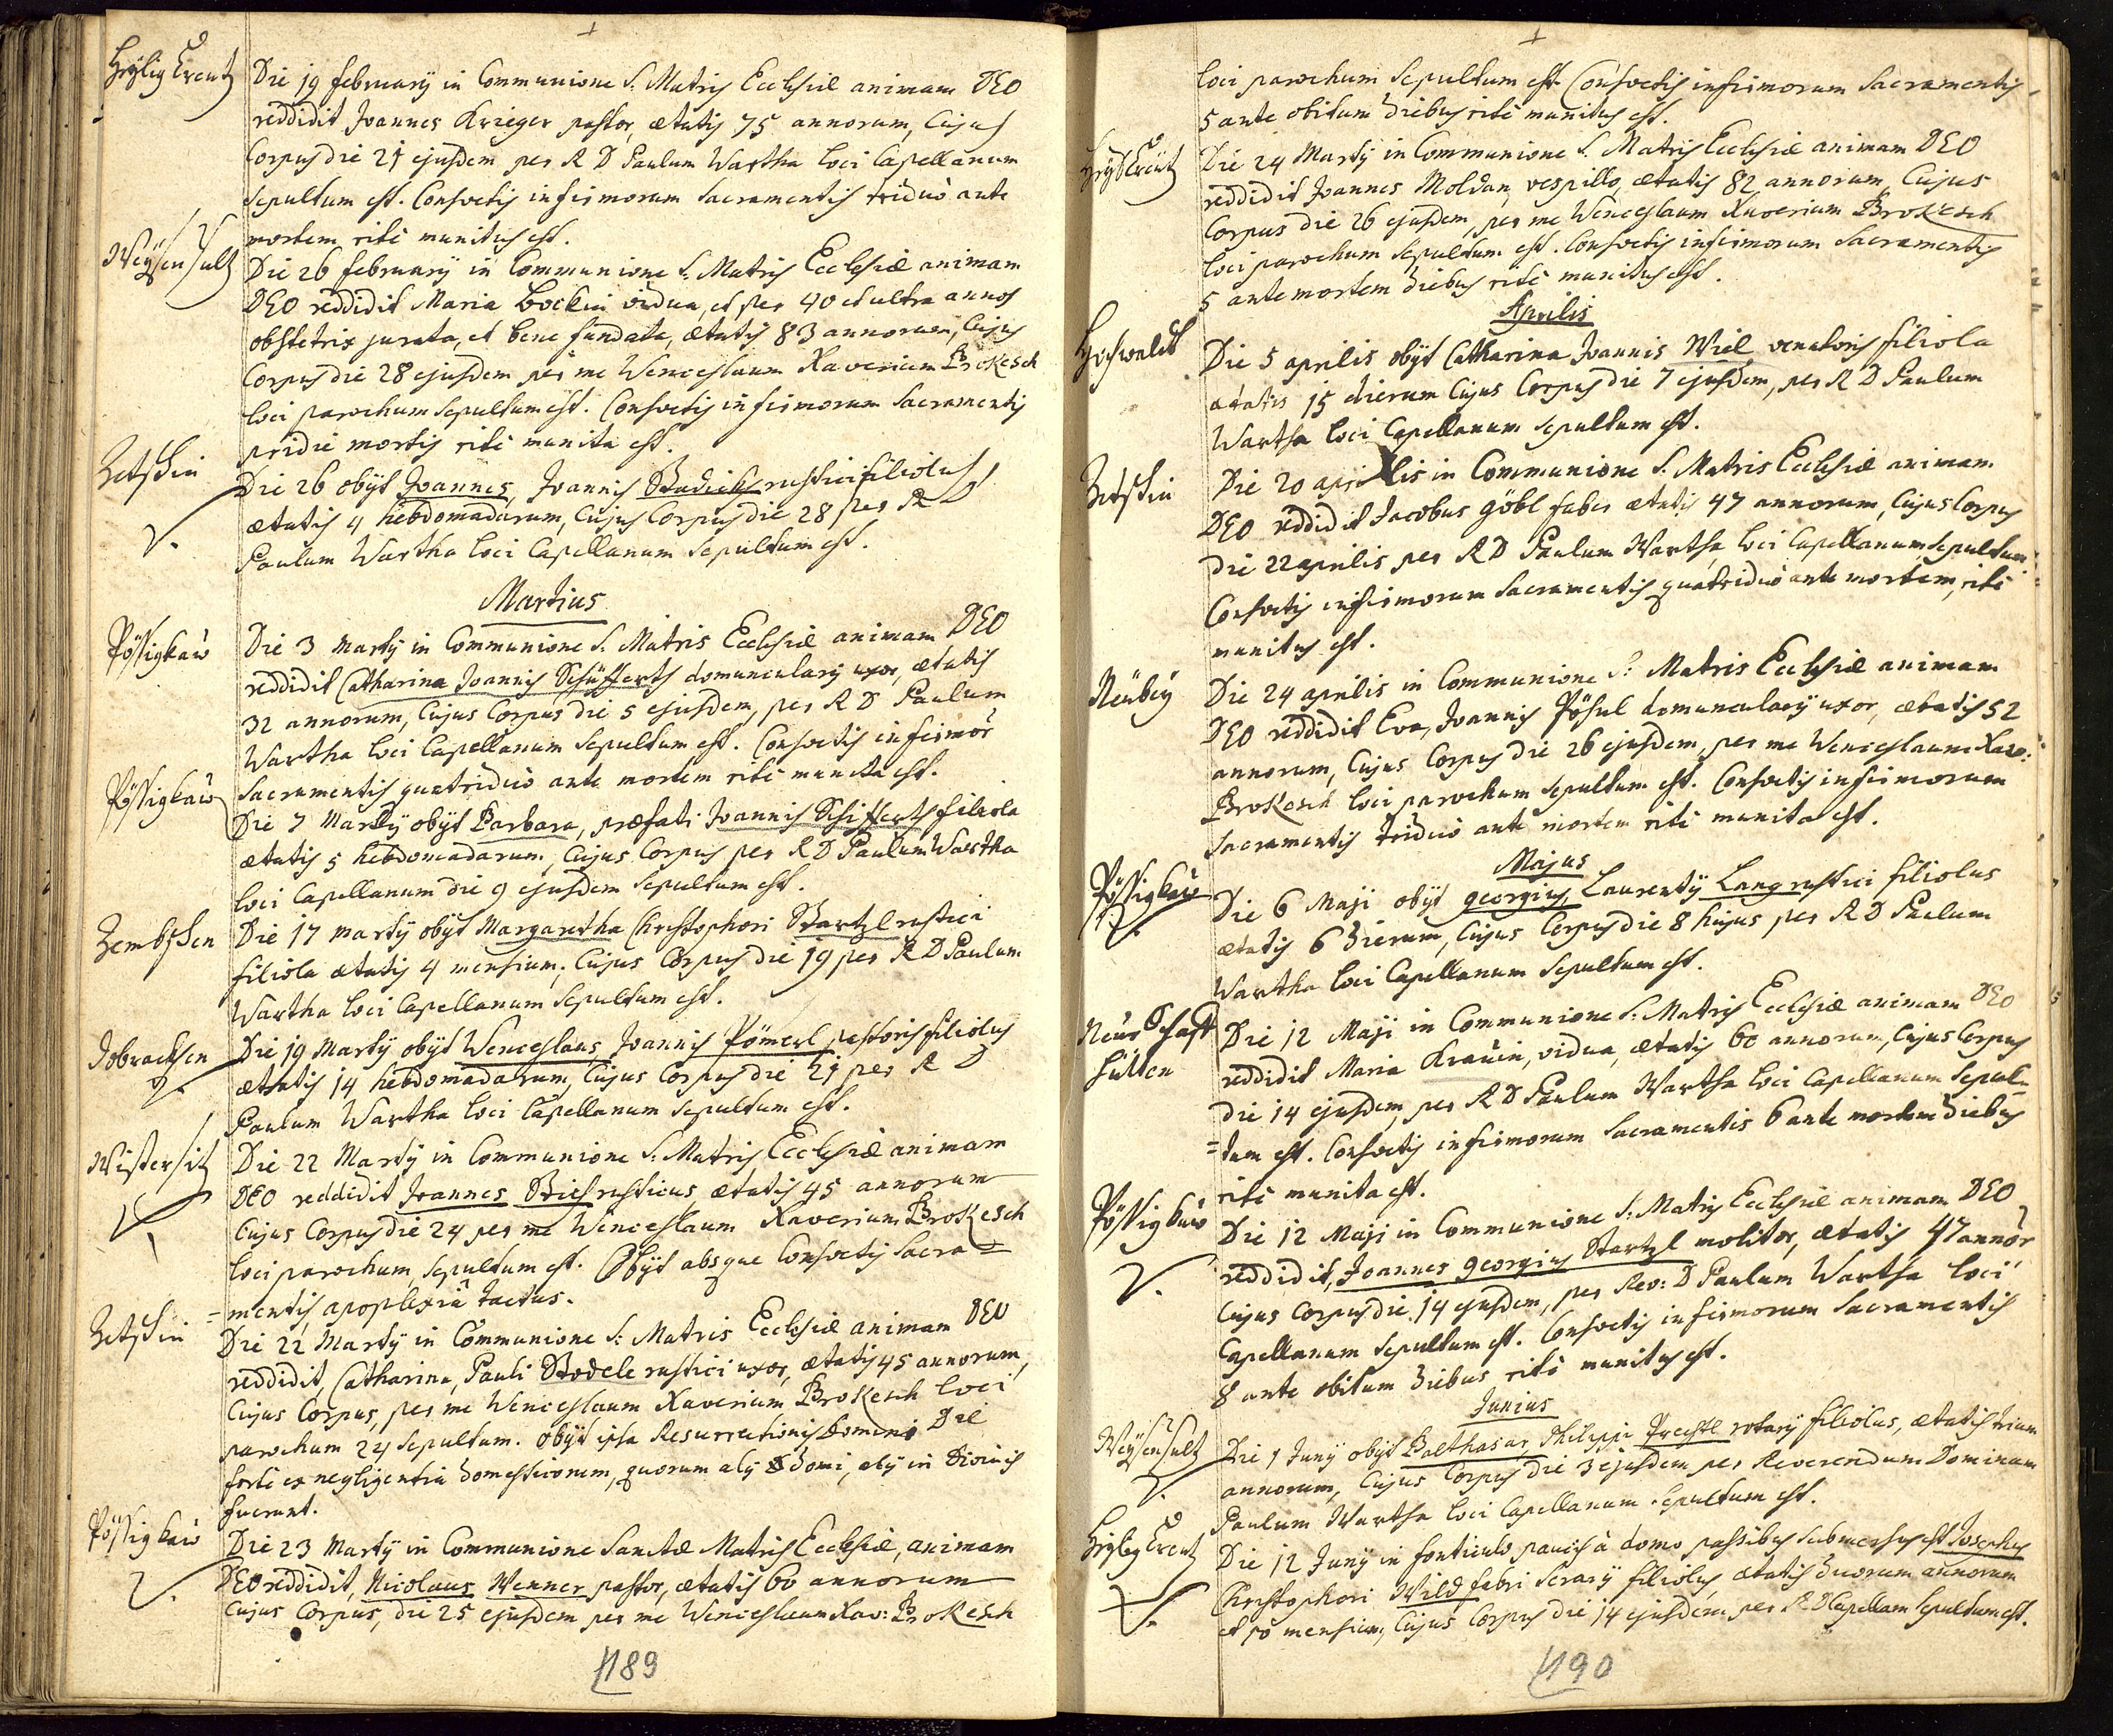 Heÿlig Creutz
Die 19 februarÿ in Communione S: Matris Ecclesiæ animam DEO
reddidit Joannes Krieger pastor, ætatis 75 annorum, Cujus
Corpus die 21 ejusdem per R D Paulum Wartha loci Capellanum
sepultum est. Consvetis infirmorum sacramentis triduò ante
mortem ritè munitus est.
Weÿsensultz
Die 26 februarÿ in Communione S: Matris Ecclesiæ animam
DEO reddidit Maria Bockin vidua, et per 40 et ultra annos
obstetrix jurata, et bene fundata, ætatis 83 annorum, Cujus
Corpus die 28 ejusdem per me Wenceslaum Xaverium Brokesch
loci parochum sepultum est. Consvetis infirmorum sacramentis
pridie mortis ritè munita est.
Zetschin
Die 26 obÿt Joannes, Joannis Stadick rustici filiolus
ætatis 4 hebdomadarum, Cujus Corpus die 28 per R D
Paulum Wartha loci Capellanum sepultum est.
Martius
Pössigkaw
Die 3 Martÿ in Communione S: Matris Ecclesiæ animam DEO
reddidit Catharina Joannis Schüfferts domuncularÿ uxor, ætatis
32 annorum, Cujus Corpus die 5 ejusdem, per R D Paulum
Wartha loci Capellanum sepultum est. Consvetis infirmor
sacramentis quatriduò ante mortem ritè munita est.
Pössigkaw
Die 7 Martÿ obÿt Barbara, præfati Joannis Schifferts filiola
ætatis 5 hebdomadarum, Cujus Corpus per R D Paulum Wartha
loci Capellanum die 9 ejusdem sepultum est.
Zembschen
Die 17 martÿ obÿt Margaretha Christophori Startzl rustici
filiola ætatis 4 mensium, Cujus Corpus die 19 per R D Paulum
Wartha loci Capellanum sepultum est.
Dobrachsen
Die 19 Martÿ obÿt Wenceslaus, Joannis Pömerl pastoris filiolus
ætatis 14 hebdomadarum, Cujus Corpus die 21 per R D
Paulum Wartha loci Capellanum sepultum est.
Wistersitz
Die 22 Martÿ in Communione S: Matris Ecclesiæ animam
DEO reddidit Joannes rusticus ætatis 45 annorum
Cujus Corpus die 24 per me Wenceslaum Xaverium Brokesch
loci parochum, sepultum est. Obÿt absque Consvetis sacra=
=mentis, apoplexiâ tactus.
Zetschin
Die 22 Martÿ in Communione S: Matris Ecclesiæ animam DEO
reddidit, Catharina, Pauli Stodele rustici uxor, ætatis 45 annorum,
Cujus Corpus, per me Wenceslaum Xaverium Brokesch loci
parochum 24 sepultum. obÿt ipsa Resurrectionis Domini Die
forte ex negligentia domesticorum, quorum alÿ domi, alÿ in Divinis
fuerunt.
Pössigkaw
Die 23 Martÿ in Communione Sanctæ Matris Ecclesiæ, animam
DEO reddidit, Nicolaus Wenner pastor, ætatis 60 annorum
Cujus Corpus, die 25 ejusdem per me Wenceslaum Xav: Brokesch
189
loci parochum sepultum est. Consvetis infirmorum sacramentis
5 ante obitum diebus ritè munitus est.
Heÿl Creütz
Die 24 Martÿ in Communione S. Matris Ecclesiæ animam DEO
reddidit Joannes Moldan, vespillo, ætatis 82 annorum, Cujus
Corpus die 26 ejusdem, per me Wenceslaum Xaverium Brokesch
loci parochum sepultum est. Consvetis infirmorum Sacramentis
5 ante mortem diebus ritè munitus est.
Aprilis
Hochwaldt
Die 5 aprilis obÿt Catharina Joannis Wiel venatoris filiola
ætatis 15 dierum Cujus Corpus die 7 ejusdem, per R D Paulum
Wartha loci Capellanum sepultum est.
Zetschin
Die 20 aprilis in Communione S. Matris Ecclesiæ animam
DEO reddidit Jacobus göbl faber ætatis 47 annorum, Cujus Corpus
die 22 aprilis per R D Paulum Wartha loci Capellanum sepultum
Consvetis infirmorum sacramentis quatriduò ante mortem, ritè
munitus est.
Neübeÿ
Die 24 aprilis in Communione S: Matris Ecclesiæ animam
DEO reddidit Eva, Joannis Pösul domuncularÿ uxor, ætatis 52
annorum, Cujus Corpus die 26 ejusdem, per me Wenceslaum Xave:
Brokesch loci parochum sepultum est. Consvetis infirmorum
sacramentis triduò ante mortem ritè munita est.
Majus
Pössigkaw
Die 6 Maji obÿt georgius, Laurentÿ Lang rustici filiolus
ætatis 6 dierum, Cujus Corpus die 8 hujus per R D Paulum
Wartha loci Capellanum sepultum est.
Hütten
Die 12 Maji in Communione S: Matris Ecclesiæ animam DEO
reddidit Maria Krauin, vidua, ætatis 60 annorum, Cujus Corpus
die 14 ejusdem, per R D Paulum Wartha loci Capellanum sepul=
=tum est. Consvetis infirmorum sacramentis 6 ante mortem diebus
ritè munita est.
Pössigkaw
Die 12 Maji in Communione S: Matris Ecclesiæ animam DEO
reddidit, Joannes georgius Startzl molitor, ætatis 47 annor
Cujus Corpus die 14 ejusdem, per Rev: D Paulum Wartha loci
Capellanum sepultum est. Consvetis infirmorum sacramentis
8 ante obitum diebus ritè munitus est.
Junius
Weÿsensultz
Die 1 Junÿ obÿt Balthasar, Philippi Prechtl rotarÿ filiolus, ætatis trium
annorum, Cujus Corpus die 3 ejusdem per Reverendum Dominum
Paulum Wartha loci Capellanum sepultum est.
Heÿlig Creutz
Die 12 Junÿ in fonticulo paucis à domo passibus submersus est Josephus
Christophori Wild fabri serarÿ filiolus, ætatis duorum annorum
et 10 mensium, Cujus Corpus die 14 ejusdem per R D Capellanum sepultum est.
190